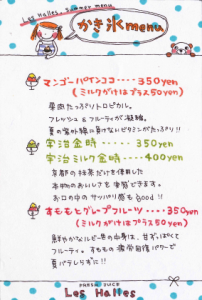 Les Halles summer menu
かき氷 menu
マンゴーパインココ・・・・350yen
(ミルクがけはプラス50yen)
果肉たっぷりトロピカル。
フレッシュ&フルーティが凝縮。
夏の紫外線に負けないビタミンがたっぷり!!
宇治金時・・・・・・350yen
宇治ミルク金時・・・・400yen
京都の抹茶だけを使用した
本物のおいしさを堪能できます。
お口の中のサッパリ感も Good!!
すももとグレープフルーツ・・・・350yen
(ミルクがけはプラス50yen)
鮮やかなルビー色の中身は、甘ずっぱくて
フルーティ。すももの疲労回復パワーで
夏バテしらずに!!
FRESH JUICE
Les Halles